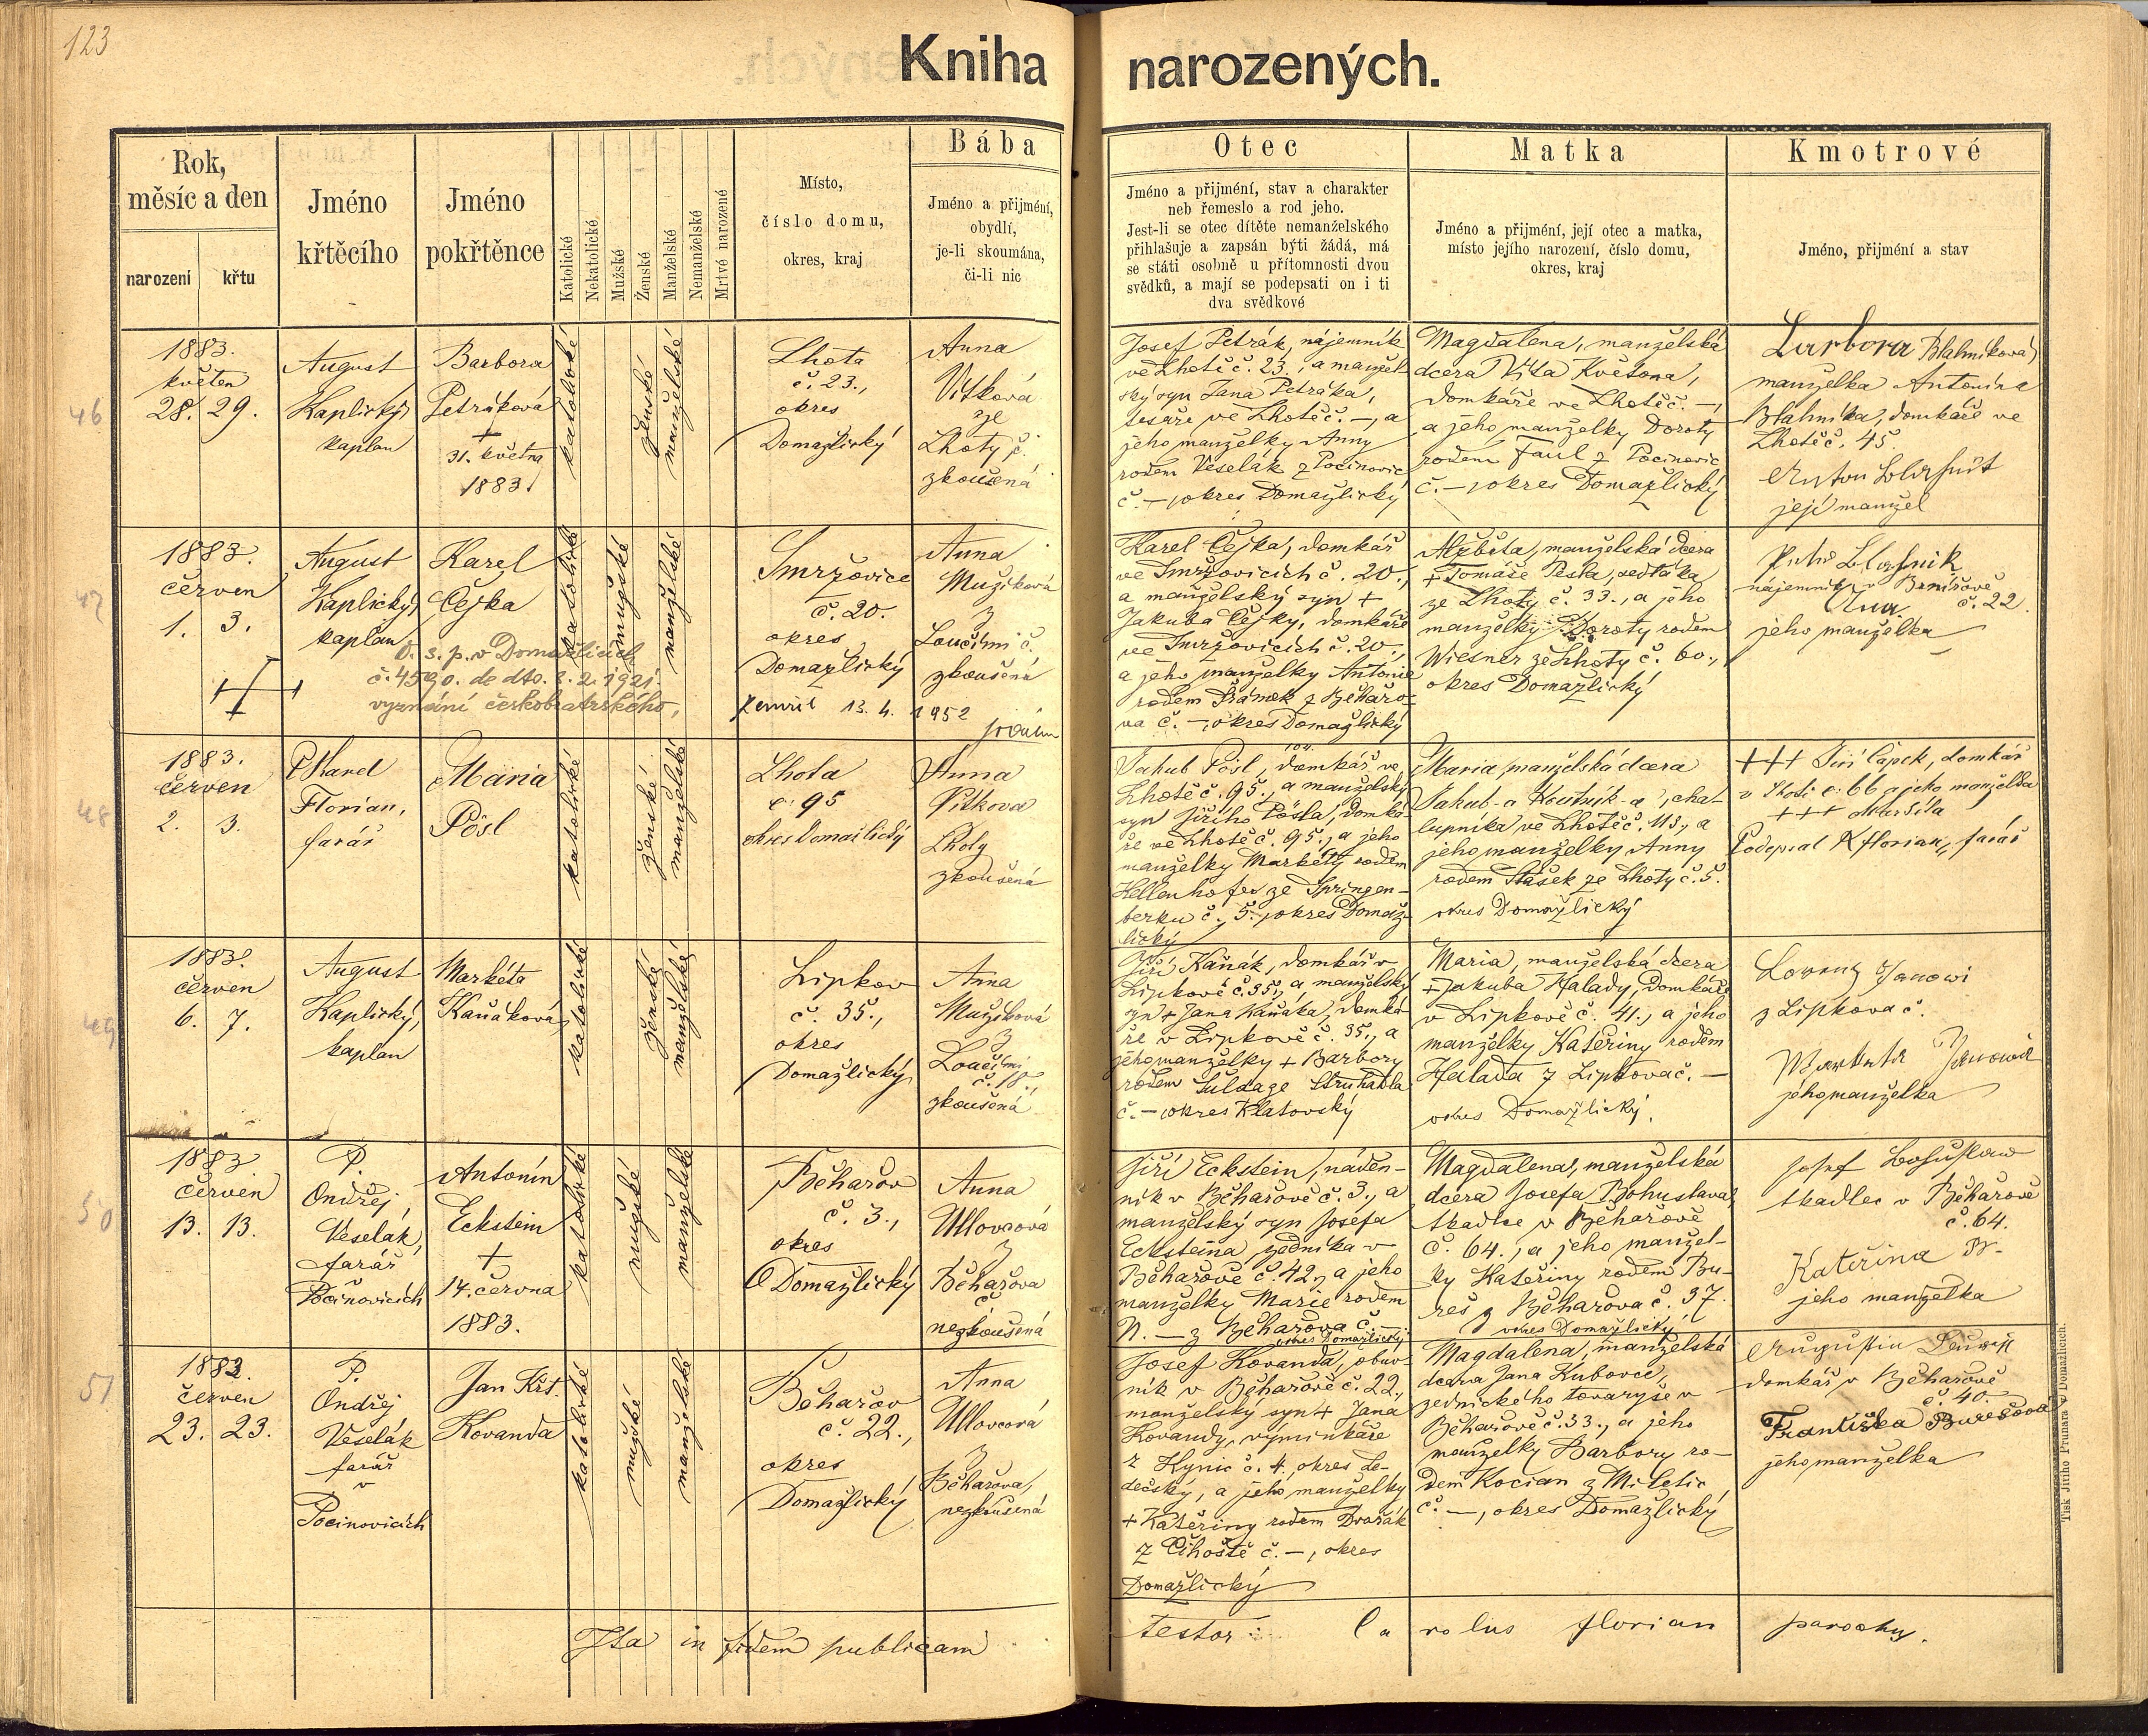 123
Kniha narozených.
Rok, měsíc a den
narození
křtu
Jméno křtěcího
Jméno pokřtěnce
Katolické
Nekatolické
Mužské
Ženské
Manželské
Nemanželské
Mrtvě narozené
Místo,
číslo domu,
okres, kraj
Bába
Jméno a přijmění,
obydlí,
je-li skoumána,
či-li nic
Otec
Jméno a přijmění, stav a charakter
neb řemeslo a rod jeho.
Jest-li se otec dítěte nemanželského
přihlašuje a zapsán býti žádá, má
se státi osobně u přítomnosti dvou
svědků, a mají se podepsati on i ti
dva svědkové
Matka
Jméno a přijmění, její otec a matka,
místo jejího narození, číslo domu,
okres, kraj
Kmotrové
Jméno, přijmění a stav
46
1883.
květen
28. 29.
August
Kaplický,
kaplan
Barbora
Petráková
+
31. května
1883.
katolické
ženské
manželské
Lhota
č. 23.,
okres
Domažlický
Anna
Vítková
ze
Lhoty č.
zkoušená
Josef Petrák, nájemník
ve Lhotě č. 23., a manžel-
ský syn Jana Petráka,
tesaře ve Lhotě č. –, a
jeho manželky Anny
rodem Veselák z Pocinovic
č. –, okres Domažlický
Magdalena, manželská
dcera Víta Květona,
domkáře ve Lhotě č. –,
a jeho manželky Doroty
rodem Faul z Pocinovic
č. –, okres Domažlický
Barbora Blahníková
manželka Antonína
Blahníka, domkáře ve
Lhotě č. 45
Anton
její manžel
47
1883.
červen
1. 3.
August
Kaplický,
kaplan
Karel
Čejka
katolické
mužské
manželské
Smržovice
č. 20.
okres
Domažlický
Anna
Mužíková
z
Loučimi č.
zkoušená
O. s. p. v Domažlicích
č. 4590. de dto. 2. 2. 1921.
vyznání českobratrského,
zemřel 13. 4. 1952
Karel Čejka, domkář
ve Smržovicích č. 20.,
a manželský syn +
Jakuba Čejky, domkáře
ve Smržovicích č. 20.,
a jeho manželky Antonie
rodem Šrámek z Běhařo-
va č. –, okres Domažlický
Alžběta, manželská dcera
+ Tomáše Pešla, sedláka
ze Lhoty č. 33., a jeho
manželky Doroty rodem
Wiesner ze Lhoty č. 60.,
okres Domažlický
nájemník v
č. 22.
jeho manželka
48
1883.
červen
2. 3.
P Karel
Florian,
farář
Maria
Pösl
katolické
ženské
manželské
Lhota
č. 95
okres Domažlický
Anna
Vítkova
Lhoty
zkoušená
Jakub Pösl, domkář ve
Lhotě č. 95., a manželský
syn Jiřího Pösla, domká-
ře ve Lhotě č. 95., a jeho
manželky Markéty rodem
Hellenhofer ze Springen-
berku č. 5., okres Domaž-
lický
Maria, manželská dcera
Jakub-a Koutník-a, cha-
lupníka ve Lhotě č. 113., a
jeho manželky Anny
rodem Stašek ze Lhoty č. 5.
okres Domažlický
+++ Jiří Čapek, domkář
v Lhotě č. 66 a jeho manželka
+++
Podepsal K florian, farář
49
1883.
červen
6. 7.
August
Kaplický,
kaplan
Markéta
Kaňáková
katolické
ženské
manželské
Lipkov
č. 35.,
okres
Domažlický
Anna
Mužíková
z
Loučimi
č. 18.,
zkoušená
Jiří Kaňák, domkář v
Lipkově č. 35., a manželský
syn + Jana Kaňáka, domká-
ře v Lipkově č. 35., a
jeho manželky + Barbory
rodem Šulda ze Struhadla
č. –, okres Klatovský
Maria, manželská dcera
+ Jakuba Halady, domkáře
v Lipkově č. 41., a jeho
manželky Kateřiny rodem
Halada z Lipkova č. –
okres Domažlický.
Lorenz Janowi
z Lipkova č.
Janowá
jeho manželka
50
1883
červen
13. 13.
P.
Ondřej
Veselák,
farář
Pocinovicích
Antonín
Eckstein
+
14. června
1883.
katolické
mužské
manželské
Běhařov
č. 3.,
okres
Domažlický
Anna
Ullovcová
z
Běhařova
č.
nezkoušená
Jiří Eckstein, náden-
ník v Běhařově č. 3., a
manželský syn Josefa
Ecksteina zedníka v
Běhařově č. 42., a jeho
manželky Marie rodem
N. – z Běhařova č. –
okres Domažlický
Magdalena, manželská
dcera Josefa Bohuslava,
tkadlce v Běhařově
č. 64., a jeho manžel-
ky Kateřiny rodem Bu-
reš z Běhařova č. 37.
okres Domažlický
Josef Bohuslaw
tkadlec v Běhařově
č. 64.
Kateřina B-
jeho manželka
51
1883.
červen
23. 23.
P.
Ondřej
Veselák
farář
v
Pocinovicích
Jan Křt.
Kovanda
katolické
mužské
manželské
Běhařov
č. 22.,
okres
Domažlický
Anna
Ullovcová
z
Běhařova,
nezkoušená
Josef Kovanda, obuv-
ník v Běhařově č. 22.,
manželský syn + Jana
Kovandy, výminkáře
z Kynic č. 4., okres Le-
dečský, a jeho manželky
+ Kateřiny rodem Dvořák
z Číhoště č. –, okres
Domažlický
Magdalena, manželská
dcera Jana Kubovce,
zednického tovaryše v
Běhařově č. 33., a jeho
manželky Barbory ro-
dem Kocian z Miletic
č. –, okres Domažlický
Augustin
domkář v Běhařově
č. 40.
Františka Burešová
jeho manželka
Ita in fidem publicam testor: Carolus florian parochus.
Tisk Jiřího Prunara v Domažlicích.